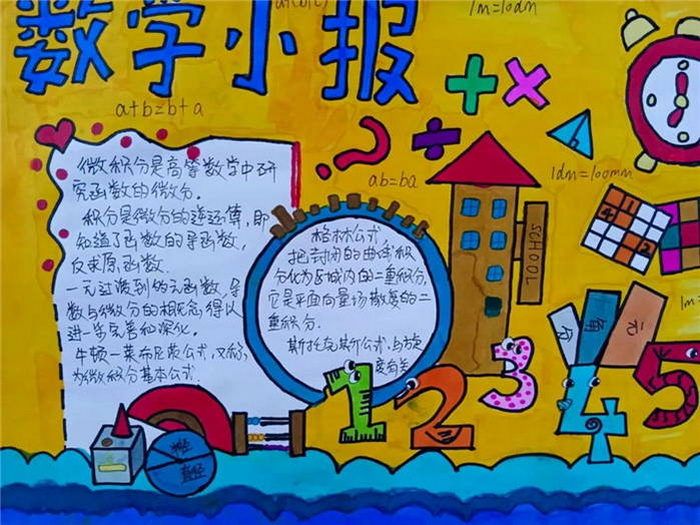 数学小报
1m=10dm
a+b=b+a
ab=ba
1dm=100mm
微积分是高等数学中研
究函数的微分.
积分是微分的逆运算,即
知道了函数的导函数,
反求原函数.
数与微分的概念得以
进一步完善和深化.
牛顿一莱布尼茨公式,又称
为微积分基本公式.
格林公式
把封闭的曲线积
分化为区域内的二重积分,
它是平面向量场散度的二
重积分.
斯托克斯公式
SCHOOL
分
角
元
1
2
3
4
5
直径